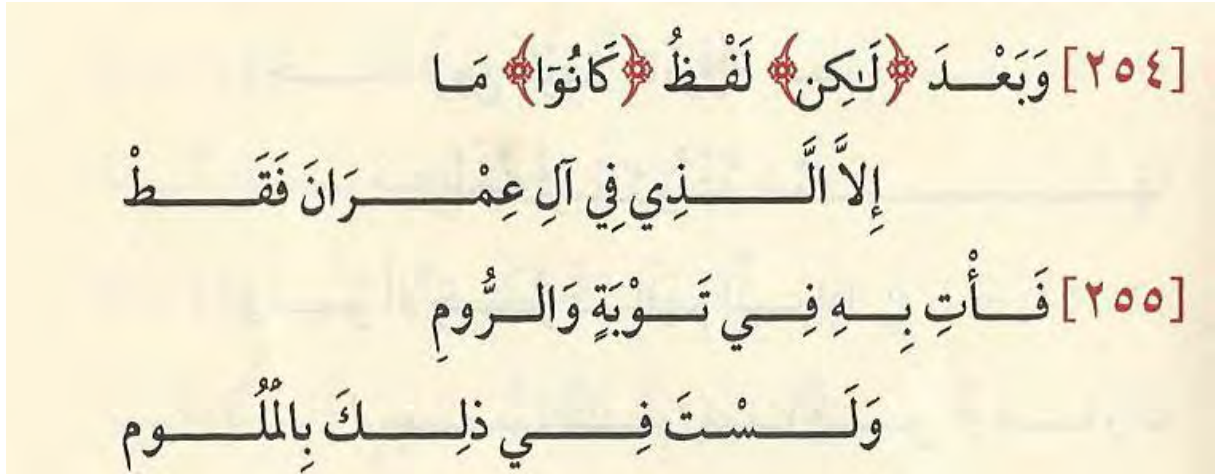 [٢٥٤] وَبَعْدَ ﴿لَٰكِن﴾ لَفْظُ ﴿كَانُوٓا﴾ مَا
إِلاَّ الَّذِي فِي آلِ عِمْرَانَ فَقَطْ
[٢٥٥] فَأْتِ بِهِ فِي تَوْبَةٍ وَالرُّومِ
وَلَسْتَ فِي ذلِكَ بِالْمُلُومِ